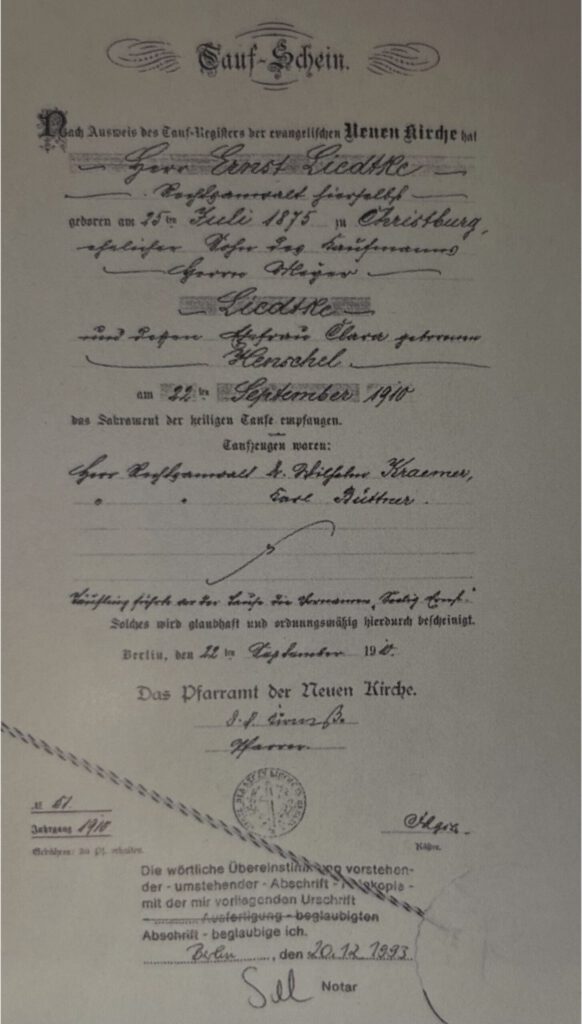 Tauf-Schein.
Nach Ausweis des Tauf-Registers der evangelischen Neuen Kirche hat
Herr Ernst Liedtke
Rechtsanwalt hierselbst
geboren am 25ten Juli 1875 zu Christburg,
ehelicher Sohn des Kaufmanns
Herrn Meyer
Liedtke
und dessen Ehefrau Clara geborenen
Henschel
am 22ten September 1910
das Sakrament der heiligen Taufe empfangen.
Taufzeugen waren:
Herr Rechtsanwalt Dr. Wilhelm Kraemer,
" " Karl Büttner.
Täufling führte vor der Taufe die Vornamen „Seelig Ernst“
Solches wird glaubhaft und ordnungsmäßig hierdurch bescheinigt.
Berlin, den 22ten September 1910.
Das Pfarramt der Neuen Kirche.
Pfarrer.
№ 51.
Jahrgang 1910
Gebühren: 50 Pf. erhalten.
Küster.
Die wörtliche Übereinstimmung vorstehen-
der - umstehender - Abschrift - Fotokopie -
mit der mir vorliegenden Urschrift
- Ausfertigung - beglaubigten
Abschrift - beglaubige ich.
Berlin, den 20.12.1993
Notar